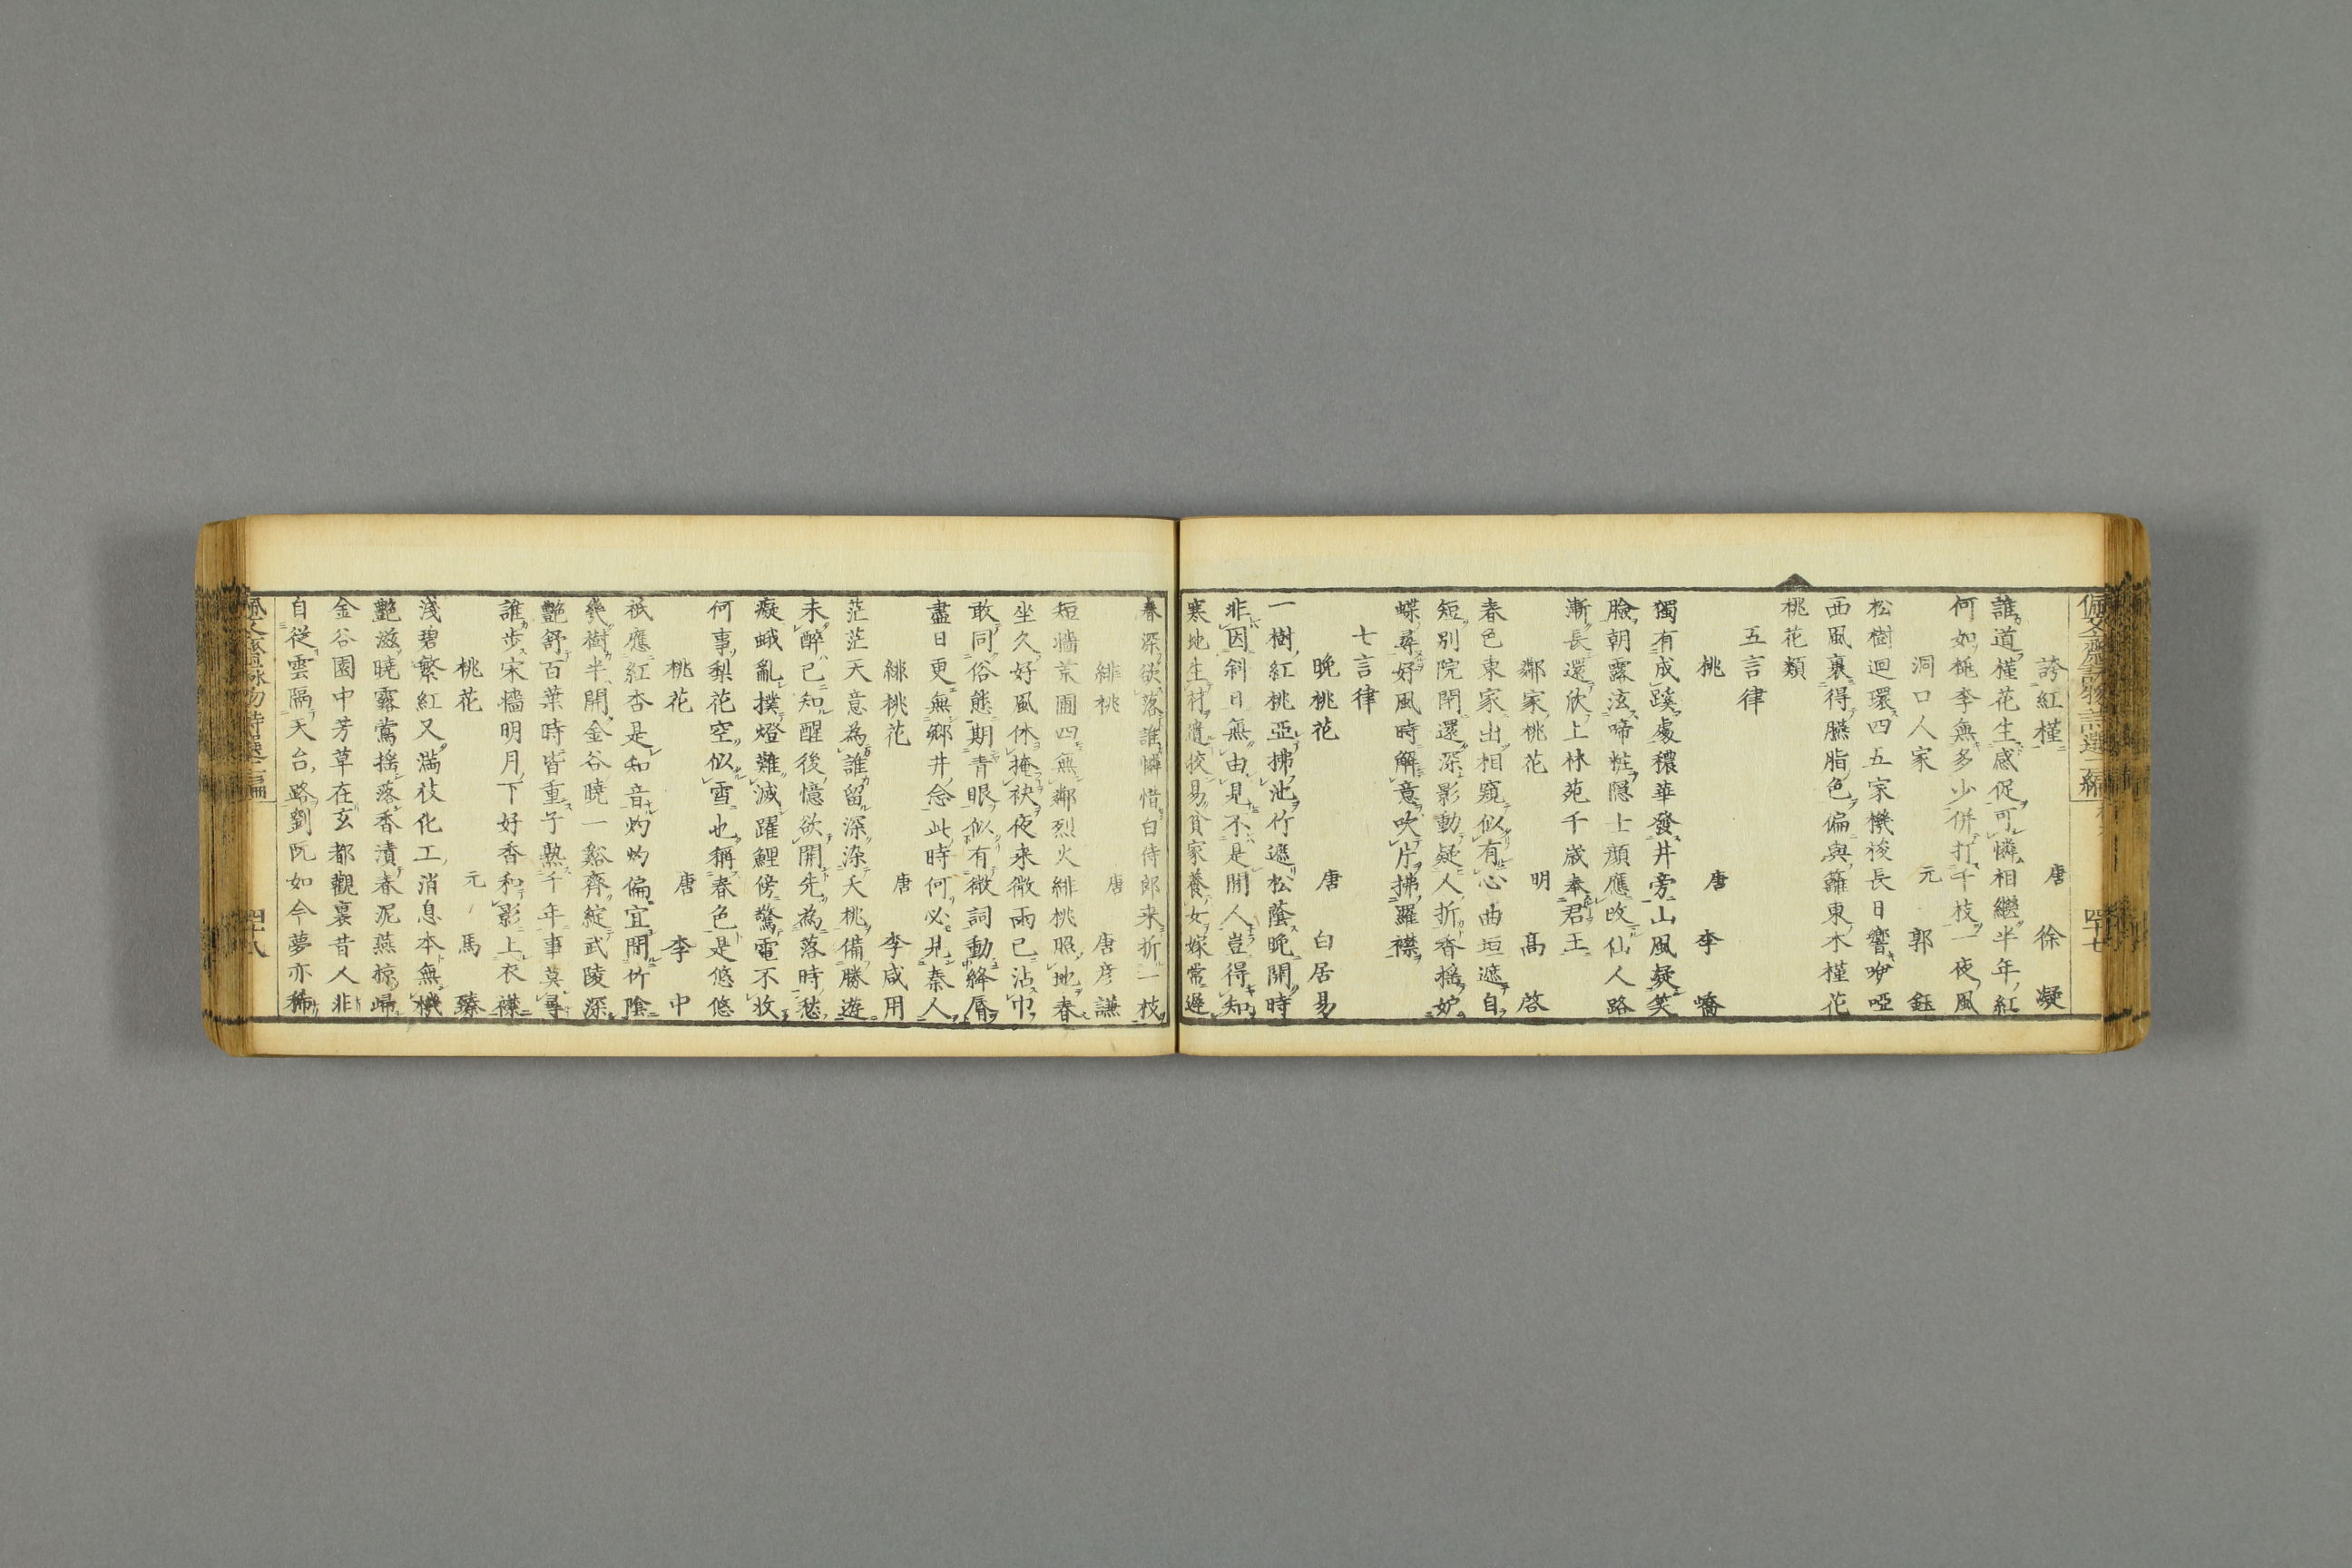 誇紅槿　唐　徐凝
誰道槿花生感促可憐相繼半年紅
何如桃李無多少併打千枝一夜風
洞口人家　元　郭鈺
松樹迴環四五家機後長日響咿啞
西風裏得臙脂色偏與籬東木槿花
桃花類
五言律
桃　唐　李嶠
獨有成蹊處穠華發井旁山風凝笑
臉朝露泫啼粧隱士顔應改仙人路
漸長還欣上林苑千歳奉君王
鄰家桃花　明　髙啓
春色東家出相窺似有心曲垣遮自
短別院閉還深影動疑人折香摇妒
蝶尋好風時解意吹片拂羅襟
七言律
晩桃花　唐　白居易
一樹紅桃亞拂池竹遮松蔭晩開時
非因斜日無由見不是閒人豈得知
寒地生材遺挍易貧家養女嫁常遲
春深欲落誰憐惜白侍郎来折一枝
緋桃　唐　唐彦謙
短墻荒圃四無鄰烈火緋桃照地春
坐久好風休掩袂夜来微雨已沾巾
敢同俗態期青眼似有微詞動絳脣
盡日更無郷井念此時何必見秦人
緋桃花　唐　李咸用
茫茫天意為誰留深染夭桃備勝遊
未醉已知醒後憶欲開先為落時愁
癡蛾亂撲燈難滅躍鯉傍驚電不收
何事梨花空似雪也稱春色是悠悠
桃花　唐　李中
祇應紅杏是知音灼灼偏宜間竹陰
幾樹半開金谷曉一谿齊綻武陵深
艶舒百葉時皆重子熟千年事莫尋
誰步宋墻明月下好香和影上衣襟
桃花　元　馬臻
淺碧繁紅又滿枝化工消息本無機
艶滋曉露鶯揺落香漬春泥燕掠歸
金谷園中芳草在玄都觀裏昔人非
自従雲隔天台路劉阮如今夢亦稀
四十七
四十八